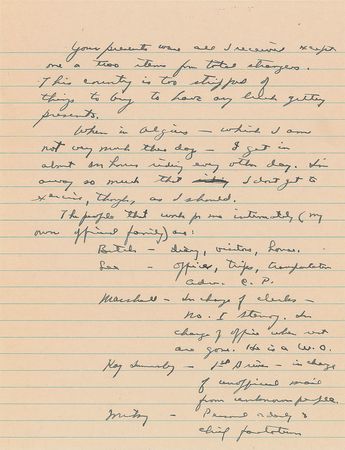 Your presents were all I received except
one or two items from total strangers.
This country is too stripped of
things to buy to have any luck getting
presents.
When in Algiers — which I am
not very much these days — I get in
about an hours riding every other day. I'm
away so much tho I don't get to
exercise, though, as I should.
The people that work for me intimately (my
own official family) are:
Butch — diary, visitors, house.
Lee — office, trips, transportation
adv. C.P.
Marshall — In charge of clerks —
No. 1 steno. In
charge of office when we
are gone. He is a W.O.
Kay Summersby — 1st Driver — in charge
of unofficial mail
from unknown people.
Mickey — Personal orderly &
chief factotum